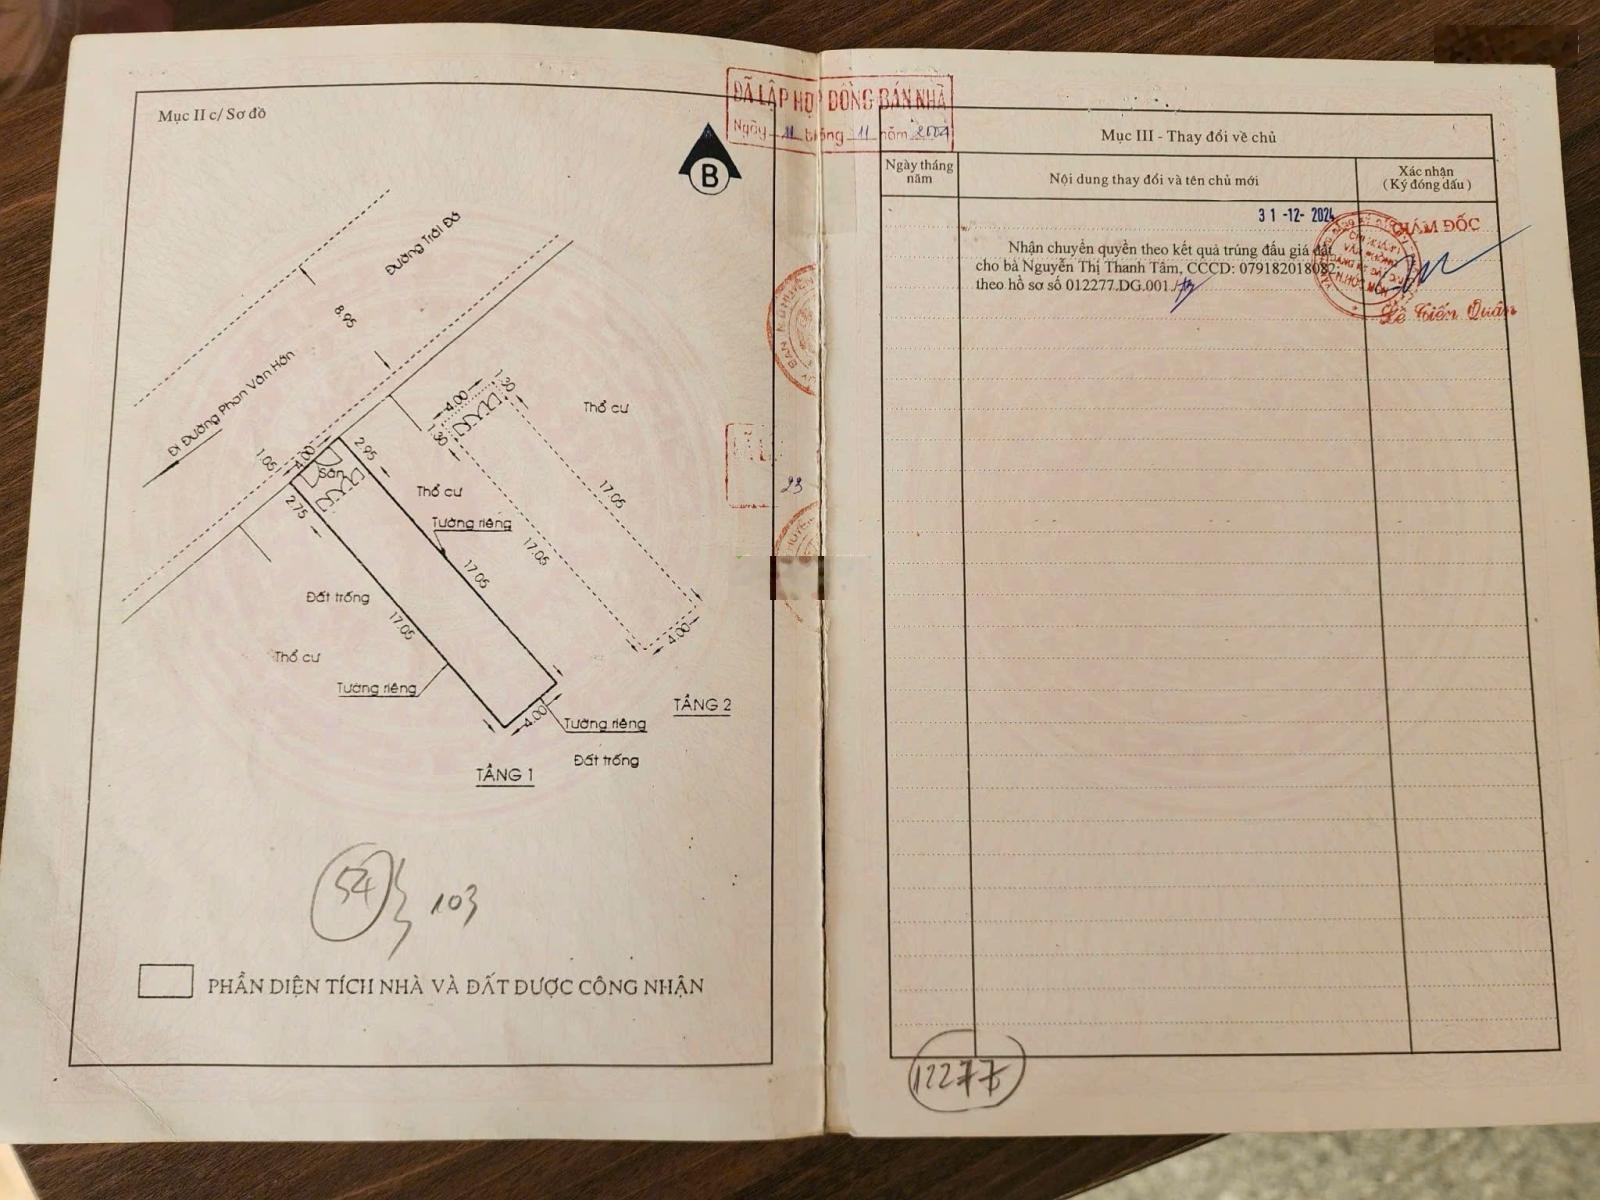 Mục II c/ Sơ đồ
ĐÃ LẬP HỢP ĐỒNG BÁN NHÀ
Ngày 11 tháng 11 năm 2004
B
Đường Trời Đỏ
8.95
Đi Đường Phan Văn Hớn
1.05
4.00
Sân
2.95
2.75
4.00
1.30
1.30
Thổ cư
Thổ cư
Tường riêng
17.05
17.05
17.05
17.05
Đất trống
Thổ cư
Tường riêng
4.00
4.00
Tường riêng
Đất trống
TẦNG 2
TẦNG 1
23
54
103
PHẦN DIỆN TÍCH NHÀ VÀ ĐẤT ĐƯỢC CÔNG NHẬN
Mục III - Thay đổi về chủ
Ngày tháng năm
Nội dung thay đổi và tên chủ mới
Xác nhận
( Ký đóng dấu )
31 -12- 2024
GIÁM ĐỐC
Nhận chuyển quyền theo kết quả trúng đấu giá đất
cho bà Nguyễn Thị Thanh Tâm, CCCD: 079182018082;
theo hồ sơ số 012277.DG.001./
CHI NHÁNH
VĂN PHÒNG
ĐĂNG KÝ ĐẤT ĐAI
H.HÓC MÔN
Lê Tiến Quân
12277